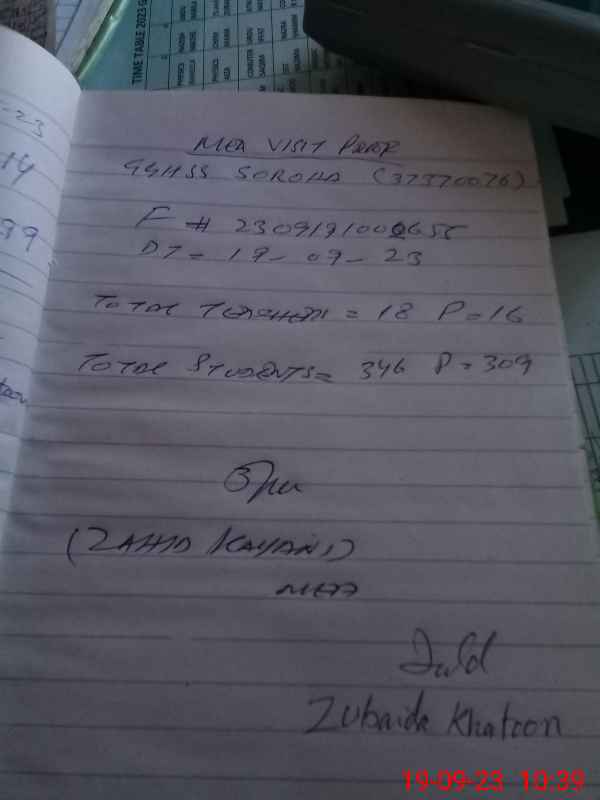 TIME TABLE 2023 G
-23
14
99
MEA VISIT PROR
GGHSS SOROHA (37370076)
F # 2309191000655
DT = 19-09-23
TOTAL TEACHERS = 18 P=16
TOTAL STUDENTS= 346 P=309
(ZAHID KAYANI)
MEA
Zubaida Khatoon
19-09-23 10:39